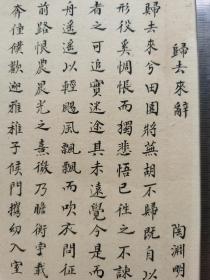 歸去來辭
陶淵明
歸去來兮田園將蕪胡不歸既自以
形役奚惆悵而獨悲悟已往之不諫
者之可追實迷途其未遠覺今是而
舟遙遙以輕颺風飄飄而吹衣問征
前路恨晨光之熹微乃瞻衡宇載
奔僮僕歡迎雅稚子候門攜幼入室